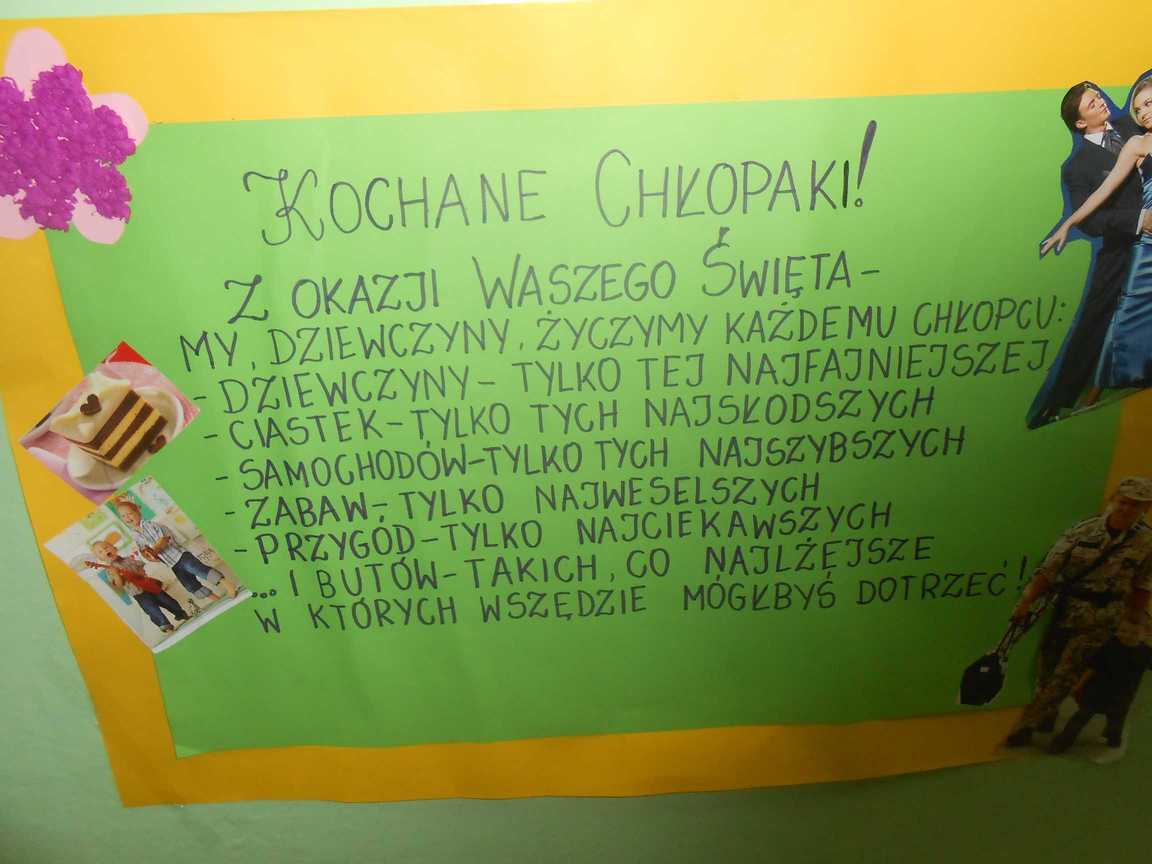 KOCHANE CHŁOPAKI!
Z OKAZJI WASZEGO ŚWIĘTA-
MY, DZIEWCZYNY, ŻYCZYMY KAŻDEMU CHŁOPCU:
- DZIEWCZYNY- TYLKO TEJ NAJFAJNIEJSZEJ,
- CIASTEK-TYLKO TYCH NAJSŁODSZYCH
- SAMOCHODÓW-TYLKO TYCH NAJSZYBSZYCH
- ZABAW- TYLKO NAJWESELSZYCH
- PRZYGÓD-TYLKO NAJCIEKAWSZYCH
... I BUTÓW-TAKICH, CO NAJLŻEJSZE
W KTÓRYCH WSZĘDZIE MÓGŁBYŚ DOTRZEĆ!